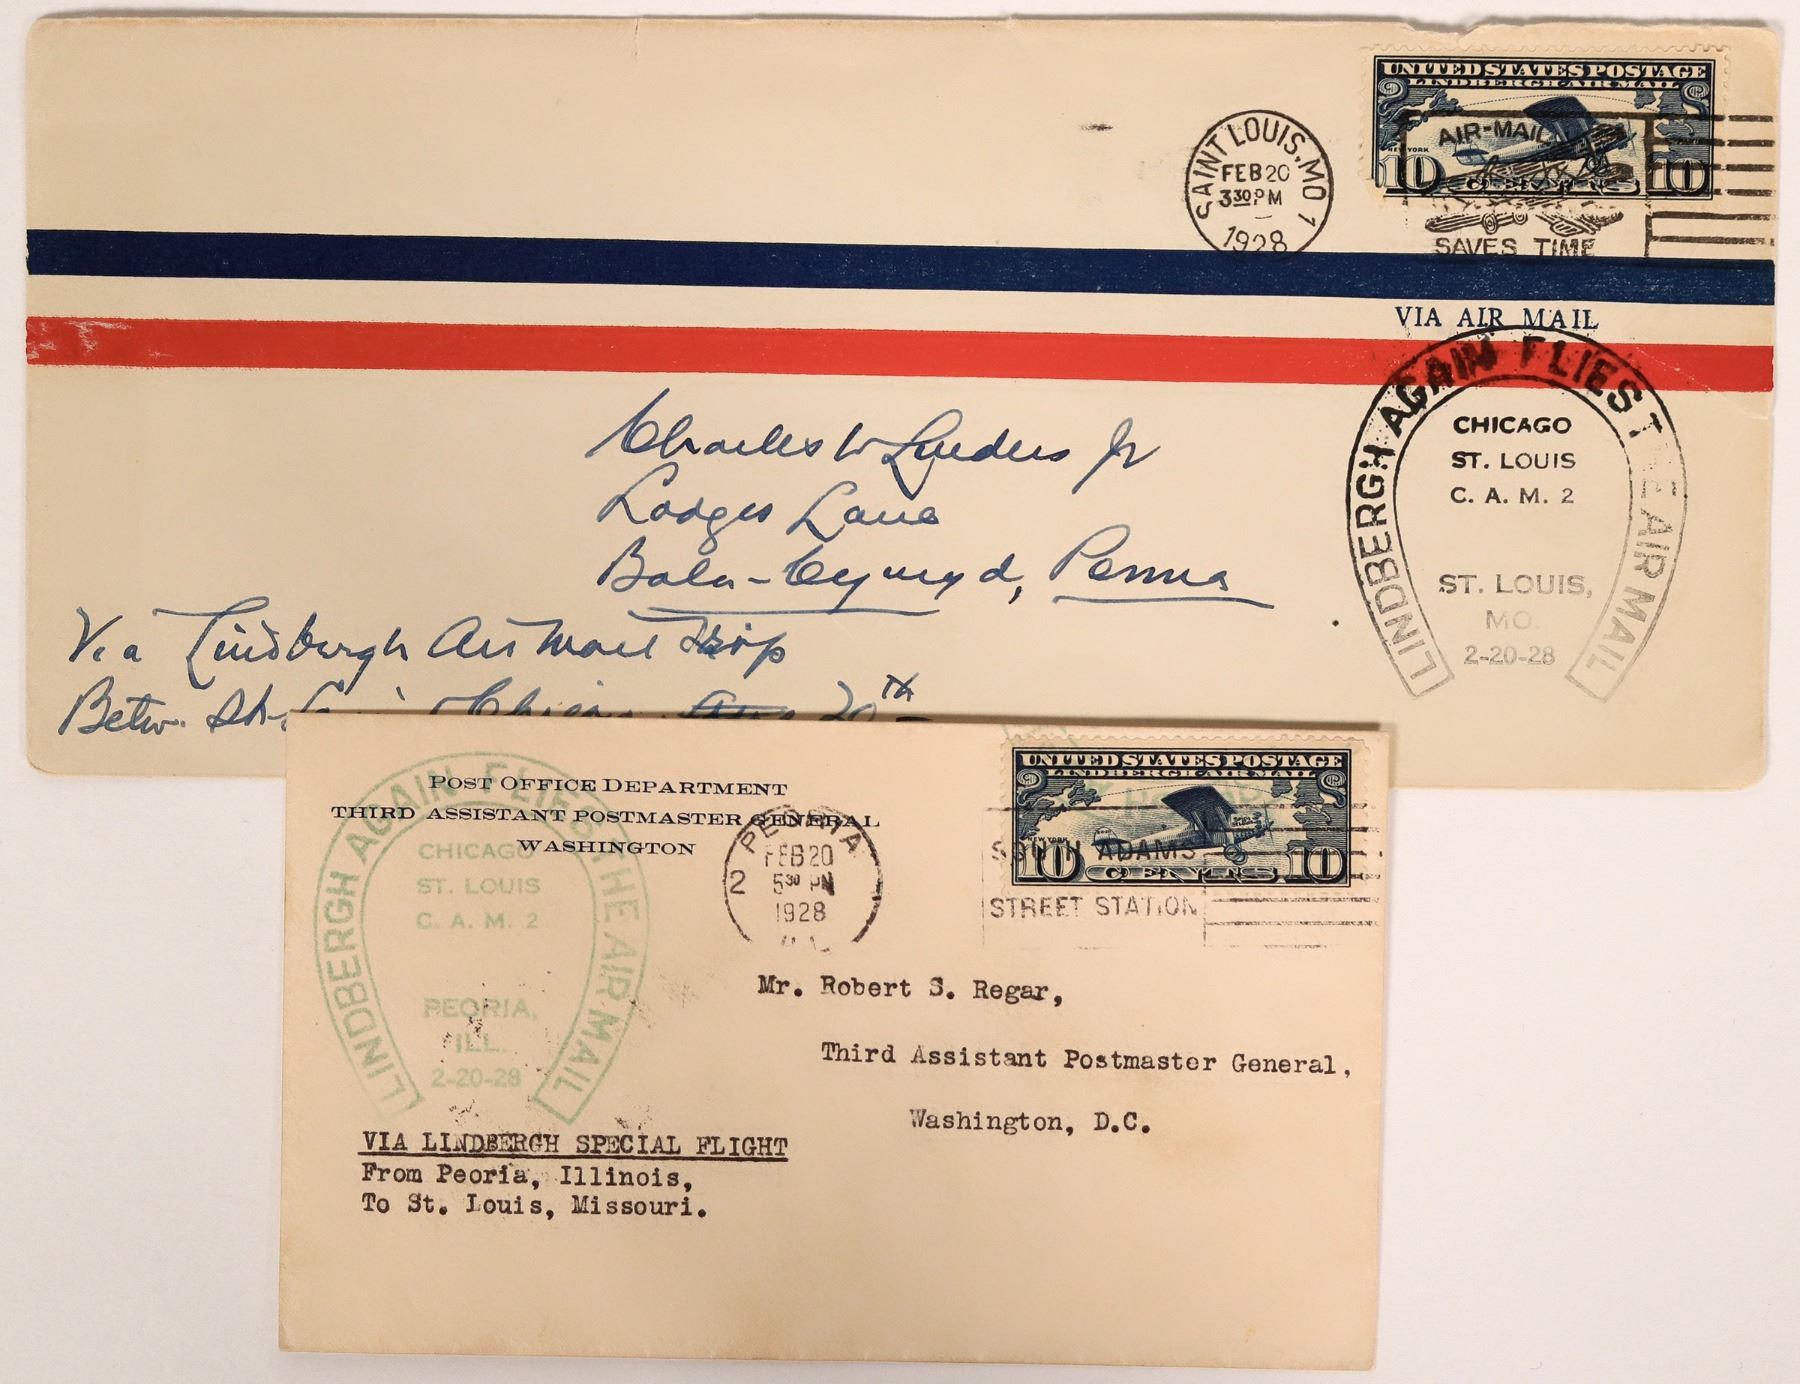 UNITED STATES POSTAGE
LINDBERGH AIR MAIL
NEW YORK
PARIS
10 CENTS 10
SAINT LOUIS, MO 1
FEB 20
3 30 PM
1928
AIR-MAIL
SAVES TIME
VIA AIR MAIL
LINDBERGH AGAIN FLIES THE AIR MAIL
CHICAGO
ST. LOUIS
C. A. M. 2
ST. LOUIS,
MO.
2-20-28
Charles W Jr
Lodges Lane
Bala-Cynwyd, Penna
Via Lindbergh Air Mail Trip
Betw. St. 20th
POST OFFICE DEPARTMENT
THIRD ASSISTANT POSTMASTER GENERAL
WASHINGTON
LINDBERGH AGAIN FLIES THE AIR MAIL
CHICAGO
ST. LOUIS
C. A. M. 2
PEORIA,
ILL.
2-20-28
PEORIA
FEB 20
2 5 30 PM
1928
ILL.
UNITED STATES POSTAGE
LINDBERGH AIR MAIL
NEW YORK
10 CENTS 10
SOUTH ADAMS
STREET STATION
Mr. Robert S. Regar,
Third Assistant Postmaster General,
Washington, D.C.
VIA LINDBERGH SPECIAL FLIGHT
From Peoria, Illinois,
To St. Louis, Missouri.